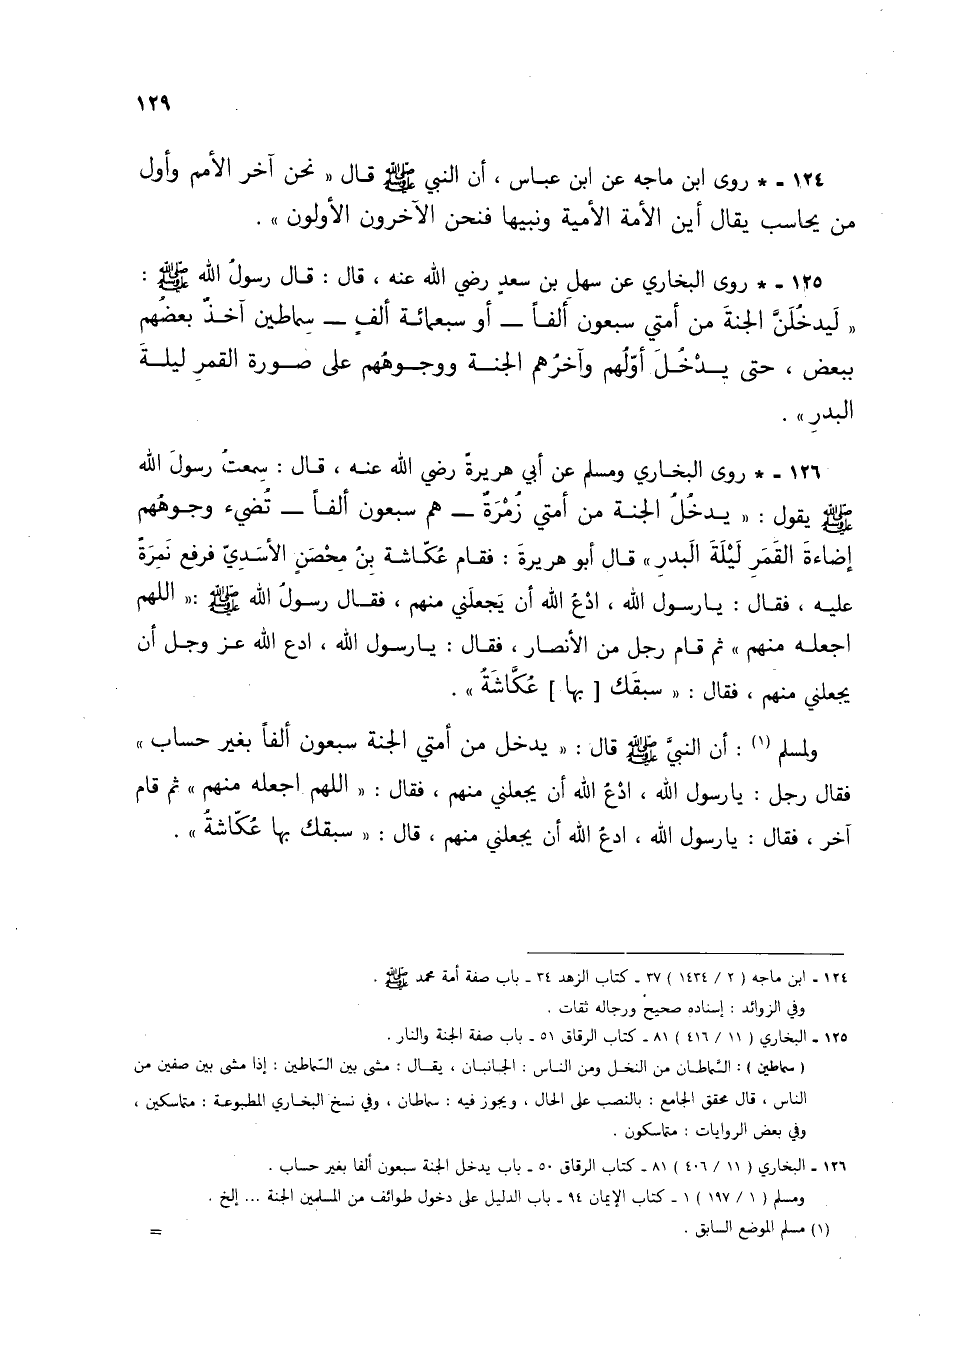 ١٢٩
١٢٤ ـ * روى ابن ماجه عن ابن عباس ، أن النبي ﷺ قال « نحن آخر الأمم وأول
من يحاسب يقال أين الأمة الأمية ونبيها فنحن الآخرون الأولون » .
١٢٥ ـ * روى البخاري عن سهل بن سعدٍ رضي الله عنه ، قال : قال رسولُ الله ﷺ :
« لَيدخُلَنَّ الجنةَ من أمتي سبعون ألفاً ــ أو سبعمائة ألفٍ ــ سِماطين آخذٌ بعضُهم
ببعض ، حتى يدْخُلَ أوّلُهم وآخرُهم الجنة ووجوهُهم على صورة القمرِ ليلةَ
البدرِ » .
١٢٦ ـ * روى البخاري ومسلم عن أبي هريرةَ رضي الله عنه ، قال : سمعتُ رسولَ الله
ﷺ يقول : « يدخُلُ الجنة من أمتي زُمْرَةٌ ــ هم سبعون ألفاً ــ تُضيء وجوهُهم
إضاءةَ القمَرِ لَيْلَةَ البدرِ » قال أبو هريرةَ : فقام عُكّاشة بنُ مِحْصَنٍ الأسَديّ فرفع نَمِرَةً
عليه ، فقال : يارسول الله ، ادْعُ الله أن يَجعلَني منهم ، فقال رسولُ الله ﷺ :« اللهم
اجعله منهم » ثم قام رجل من الأنصار ، فقال : يارسول الله ، ادع الله عز وجل أن
يجعلني منهم ، فقال : « سبقَك [ بها ] عُكَّاشَةُ » .
ولمسلم (١) : أن النبيَّ ﷺ قال : « يدخل من أمتي الجنة سبعون ألفاً بغير حساب »
فقال رجل : يارسول الله ، ادْعُ الله أن يجعلني منهم ، فقال : « اللهم اجعله منهم » ثم قام
آخر ، فقال : يارسول الله ، ادعُ الله أن يجعلني منهم ، قال : « سبقك بها عُكّاشةُ » .
١٢٤ ـ ابن ماجه ( ٢ / ١٤٣٤ ) ٣٧ ـ كتاب الزهد ٣٤ ـ باب صفة أمة محمد ﷺ .
وفي الزوائد : إسناده صحيح ورجاله ثقات .
١٢٥ ـ البخاري ( ١١ / ٤١٦ ) ٨١ ـ كتاب الرقاق ٥١ ـ باب صفة الجنة والنار .
( سماطين ) : السِّماطان من النخل ومن الناس : الجانبان ، يقال : مشى بين السِّماطين : إذا مشى بين صفين من
الناس ، قال محقق الجامع : بالنصب على الحال ، ويجوز فيه : سماطان ، وفي نسخ البخاري المطبوعة : متماسكين ،
وفي بعض الروايات : متماسكون .
١٢٦ ـ البخاري ( ١١ / ٤٠٦ ) ٨١ ـ كتاب الرقاق ٥٠ ـ باب يدخل الجنة سبعون ألفا بغير حساب .
ومسلم ( ١ / ١٩٧ ) ١ ـ كتاب الإيمان ٩٤ ـ باب الدليل على دخول طوائف من المسلمين الجنة ... إلخ .
(١) مسلم الموضع السابق .
=